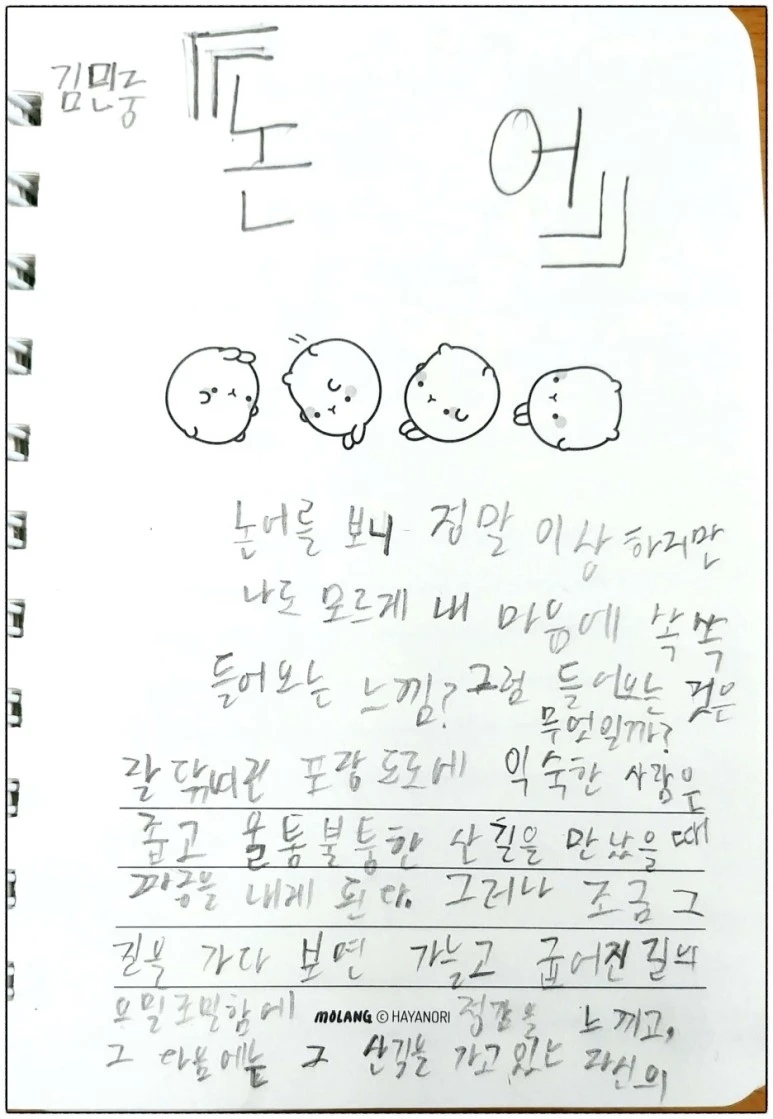 김민중
『논 어』
논어를 보니 정말 이상하지만
나도 모르게 내 마음에 쏙쏙
들어오는 느낌? 그럼 들어오는 것은
무엇일까?
잘 닦여진 포장도로에 익숙한 사람은
좁고 울퉁불퉁한 산길을 만났을 때
짜증을 내게 된다. 그러나 조금 그
길을 가다 보면 가늘고 굽어진 길의
오밀조밀함에 정감을 느끼고,
MOLANG © HAYANORI
그 다음에는 그 산길을 가고 있는 자신의